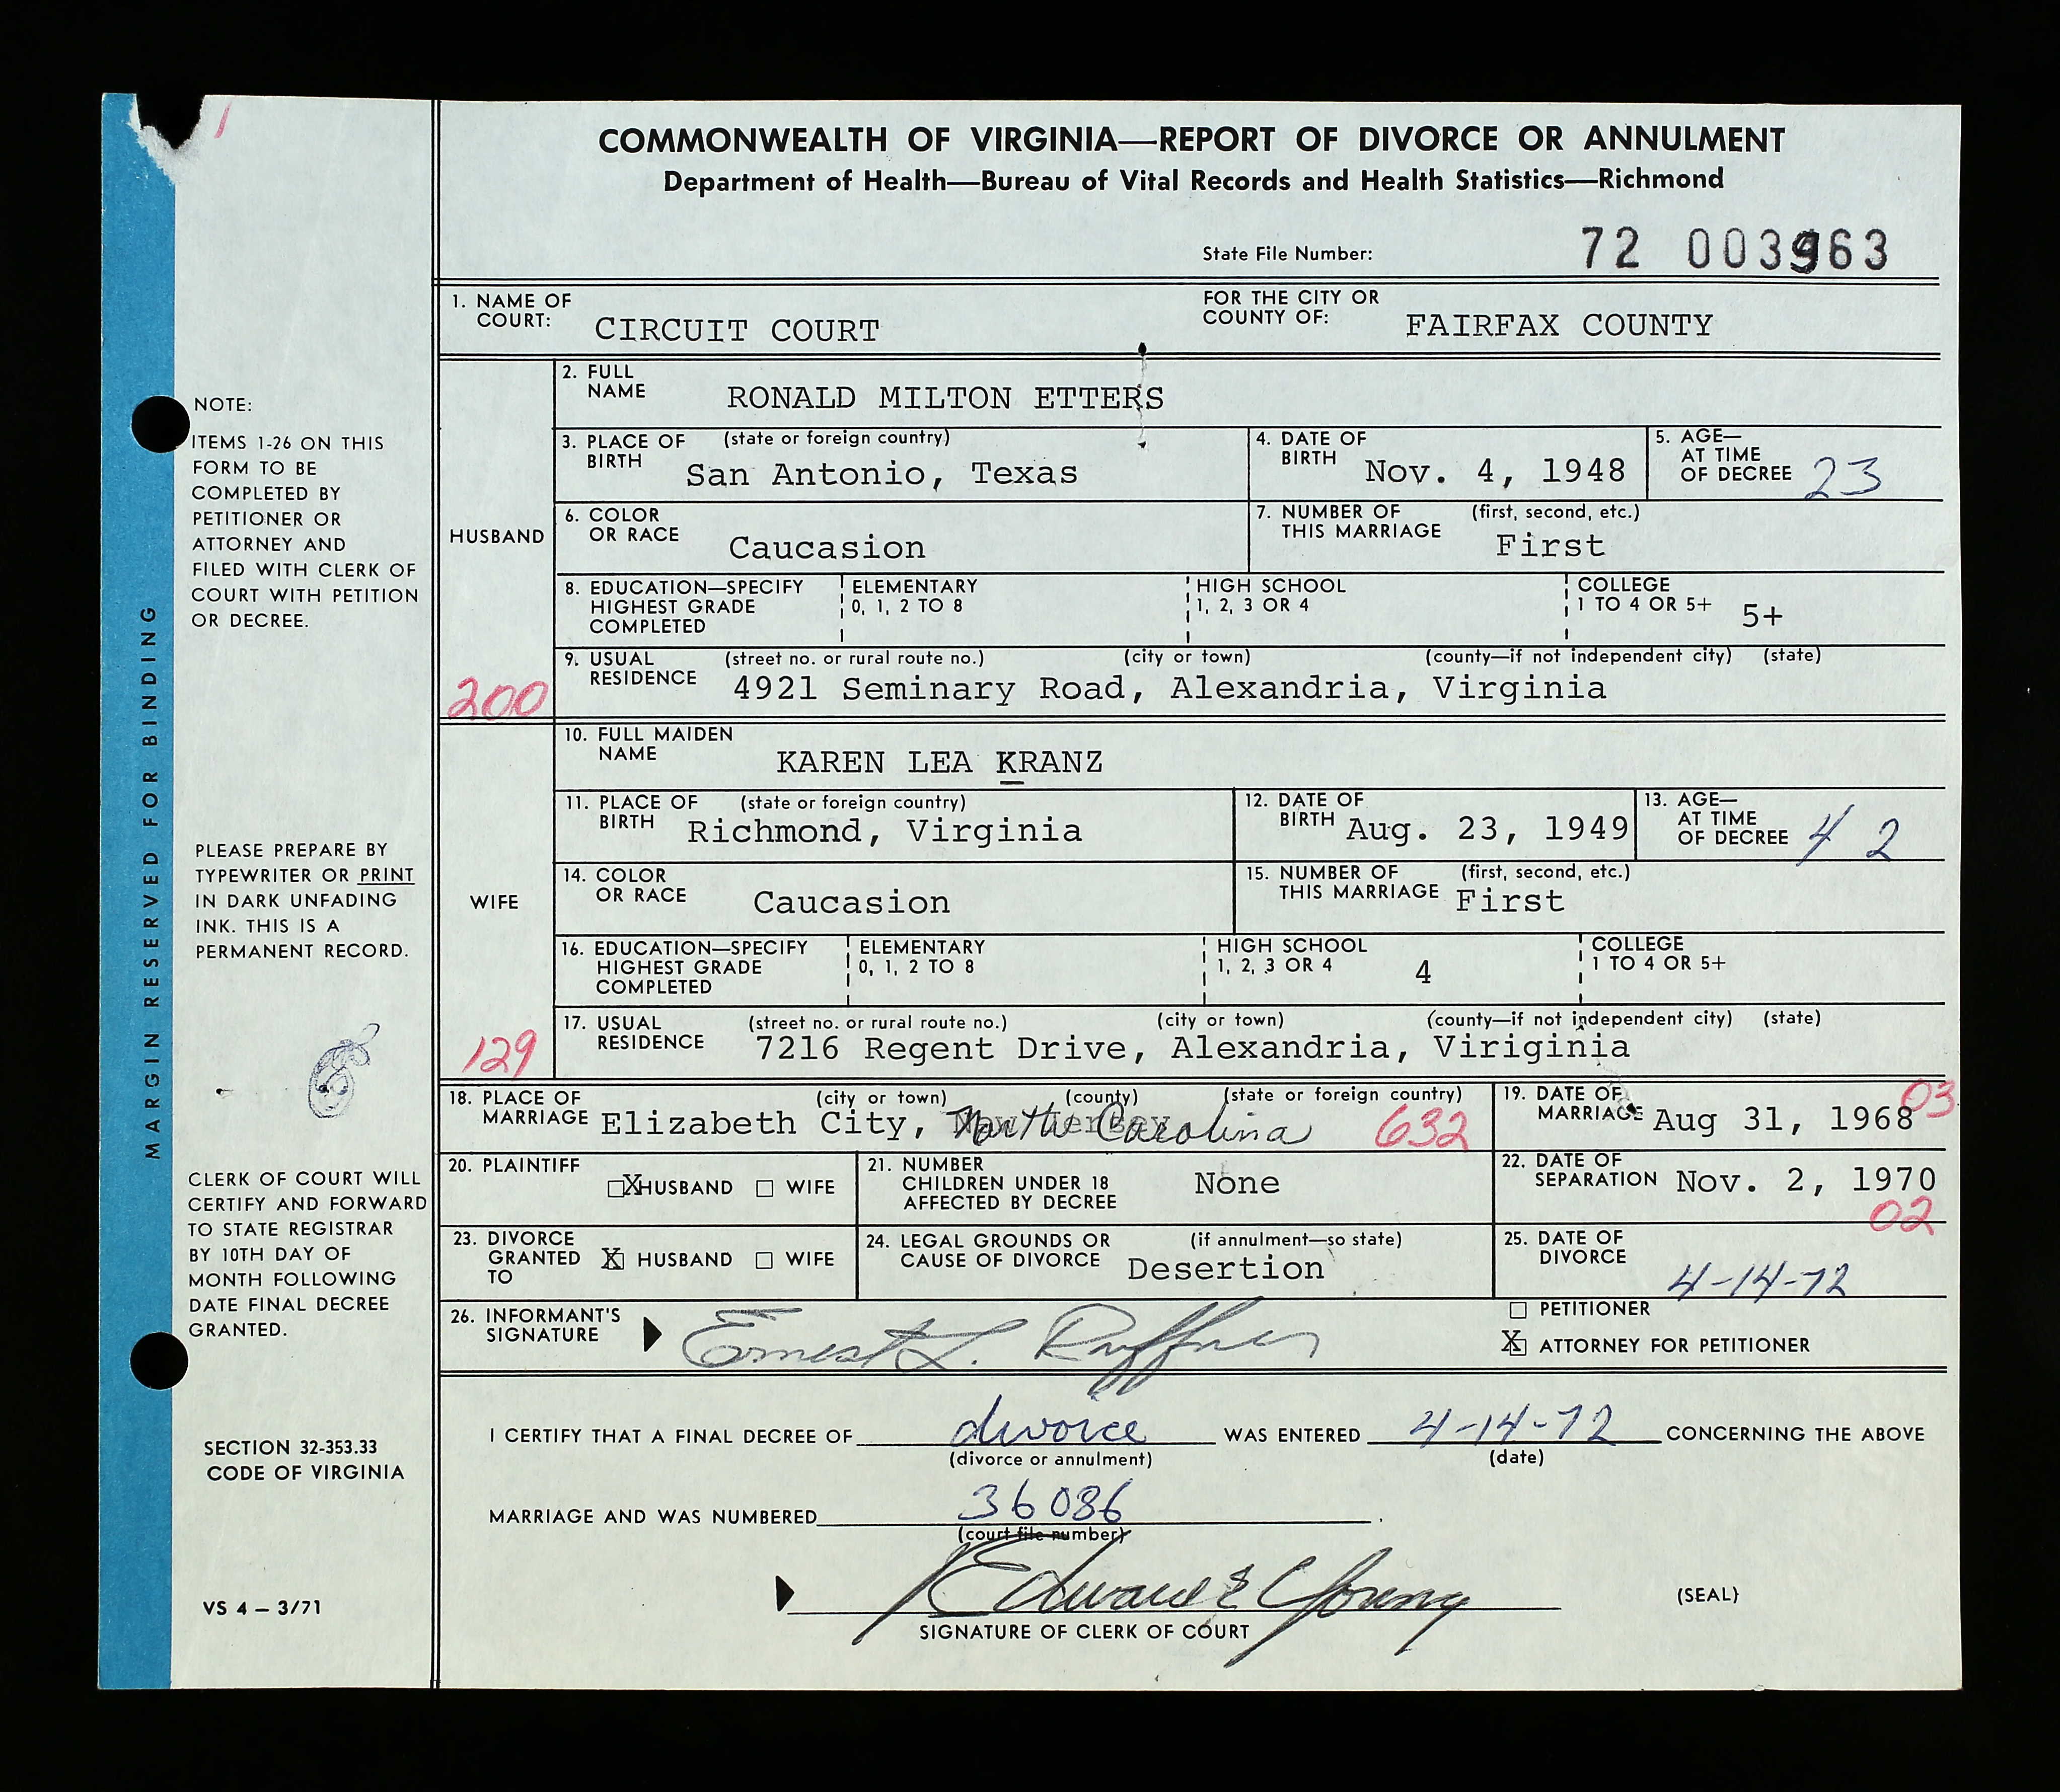 COMMONWEALTH OF VIRGINIA—REPORT OF DIVORCE OR ANNULMENT
Department of Health—Bureau of Vital Records and Health Statistics—Richmond
State File Number: 72 003963
1. NAME OF COURT: CIRCUIT COURT FOR THE CITY OR COUNTY OF: FAIRFAX COUNTY
HUSBAND
2. FULL NAME RONALD MILTON ETTERS
3. PLACE OF BIRTH (state or foreign country) San Antonio, Texas
4. DATE OF BIRTH Nov. 4, 1948
5. AGE—AT TIME OF DECREE 23
6. COLOR OR RACE Caucasion
7. NUMBER OF THIS MARRIAGE (first, second, etc.) First
8. EDUCATION—SPECIFY HIGHEST GRADE COMPLETED ELEMENTARY 0, 1, 2 TO 8 HIGH SCHOOL 1, 2, 3 OR 4 COLLEGE 1 TO 4 OR 5+ 5+
9. USUAL RESIDENCE (street no. or rural route no.) (city or town) (county—if not independent city) (state)
4921 Seminary Road, Alexandria, Virginia
200
WIFE
10. FULL MAIDEN NAME KAREN LEA KRANZ
11. PLACE OF BIRTH (state or foreign country) Richmond, Virginia
12. DATE OF BIRTH Aug. 23, 1949
13. AGE—AT TIME OF DECREE 42
14. COLOR OR RACE Caucasion
15. NUMBER OF THIS MARRIAGE (first, second, etc.) First
16. EDUCATION—SPECIFY HIGHEST GRADE COMPLETED ELEMENTARY 0, 1, 2 TO 8 HIGH SCHOOL 1, 2, 3 OR 4 4 COLLEGE 1 TO 4 OR 5+
17. USUAL RESIDENCE (street no. or rural route no.) (city or town) (county—if not independent city) (state)
7216 Regent Drive, Alexandria, Viriginia
129
18. PLACE OF MARRIAGE (city or town) (county) (state or foreign country)
Elizabeth City, North Carolina 632
19. DATE OF MARRIAGE Aug 31, 1968 03
20. PLAINTIFF X HUSBAND WIFE
21. NUMBER CHILDREN UNDER 18 AFFECTED BY DECREE None
22. DATE OF SEPARATION Nov. 2, 1970
02
23. DIVORCE GRANTED TO X HUSBAND WIFE
24. LEGAL GROUNDS OR CAUSE OF DIVORCE (if annulment—so state) Desertion
25. DATE OF DIVORCE 4-14-72
26. INFORMANT'S SIGNATURE Ernest L. Ruffner
PETITIONER
X ATTORNEY FOR PETITIONER
I CERTIFY THAT A FINAL DECREE OF divorce WAS ENTERED 4-14-72 CONCERNING THE ABOVE
(divorce or annulment) (date)
MARRIAGE AND WAS NUMBERED 36086
(court file number)
Edward E Young
(SEAL)
SIGNATURE OF CLERK OF COURT
MARGIN RESERVED FOR BINDING
NOTE:
ITEMS 1-26 ON THIS
FORM TO BE
COMPLETED BY
PETITIONER OR
ATTORNEY AND
FILED WITH CLERK OF
COURT WITH PETITION
OR DECREE.
PLEASE PREPARE BY
TYPEWRITER OR PRINT
IN DARK UNFADING
INK. THIS IS A
PERMANENT RECORD.
CLERK OF COURT WILL
CERTIFY AND FORWARD
TO STATE REGISTRAR
BY 10TH DAY OF
MONTH FOLLOWING
DATE FINAL DECREE
GRANTED.
SECTION 32-353.33
CODE OF VIRGINIA
VS 4 – 3/71